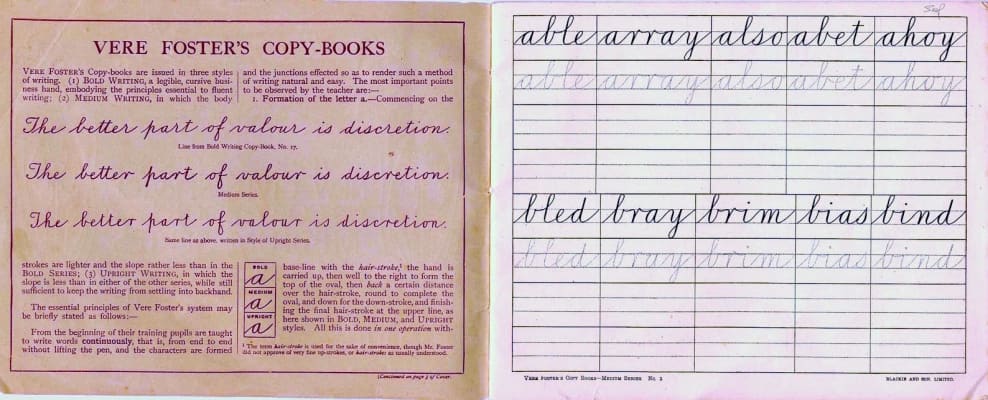 VERE FOSTER'S COPY-BOOKS
VERE FOSTER'S Copy-books are issued in three styles
of writing. (1) BOLD WRITING, a legible, cursive busi-
ness hand, embodying the principles essential to fluent
writing; (2) MEDIUM WRITING, in which the body
and the junctions effected so as to render such a method
of writing natural and easy. The most important points
to be observed by the teacher are:—
1. Formation of the letter a.—Commencing on the
The better part of valour is discretion.
Line from Bold Writing Copy-Book, No. 17.
The better part of valour is discretion.
Medium Series.
The better part of valour is discretion.
Same line as above, written in Style of Upright Series.
strokes are lighter and the slope rather less than in the
BOLD SERIES; (3) UPRIGHT WRITING, in which the
slope is less than in either of the other series, while still
sufficient to keep the writing from settling into backhand.
The essential principles of Vere Foster's system may
be briefly stated as follows:—
From the beginning of their training pupils are taught
to write words continuously, that is, from end to end
without lifting the pen, and the characters are formed
BOLD
a
MEDIUM
a
UPRIGHT
a
base-line with the hair-stroke,¹ the hand is
carried up, then well to the right to form the
top of the oval, then back a certain distance
over the hair-stroke, round to complete the
oval, and down for the down-stroke, and finish-
ing the final hair-stroke at the upper line, as
here shown in BOLD, MEDIUM, and UPRIGHT
styles. All this is done in one operation with-
¹ The term hair-stroke is used for the sake of convenience, though Mr. Foster
did not approve of very fine up-strokes, or hair-strokes as usually understood.
(Continued on page 3 of Cover.
able array also abet ahoy
able array also abet ahoy
bled bray brim bias bind
bled bray brim bias bind
VERE FOSTER'S COPY BOOKS—MEDIUM SERIES No. 2
BLACKIE AND SON, LIMITED.